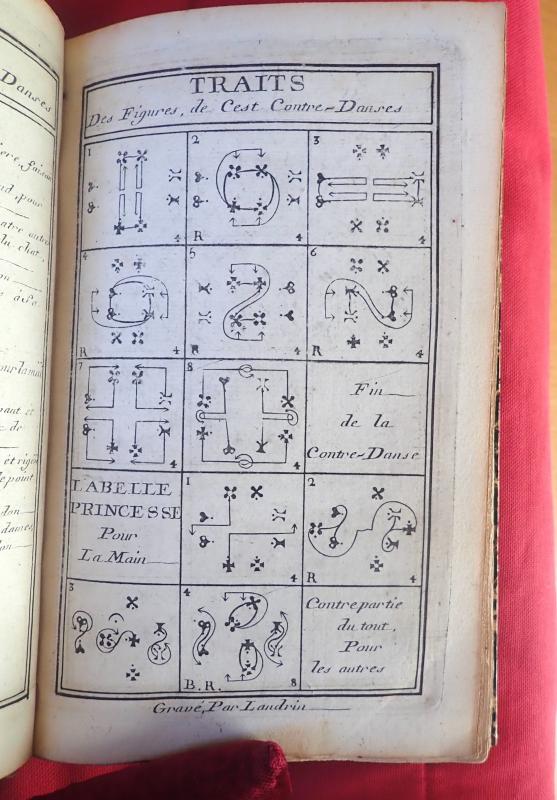 Danses
TRAITS
Des Figures, de Cest Contre-Danses
1
4
2
R
4
3
4
4
R
4
5
R
4
6
R
4
7
4
8
4
Fin
de la
Contre-Danse
LABELLE
PRINCESSE
Pour
La Main
1
4
2
R
4
3
4
B.R.
8
Contrepartie
du tout,
Pour
les autres
Gravé, Par Landrin